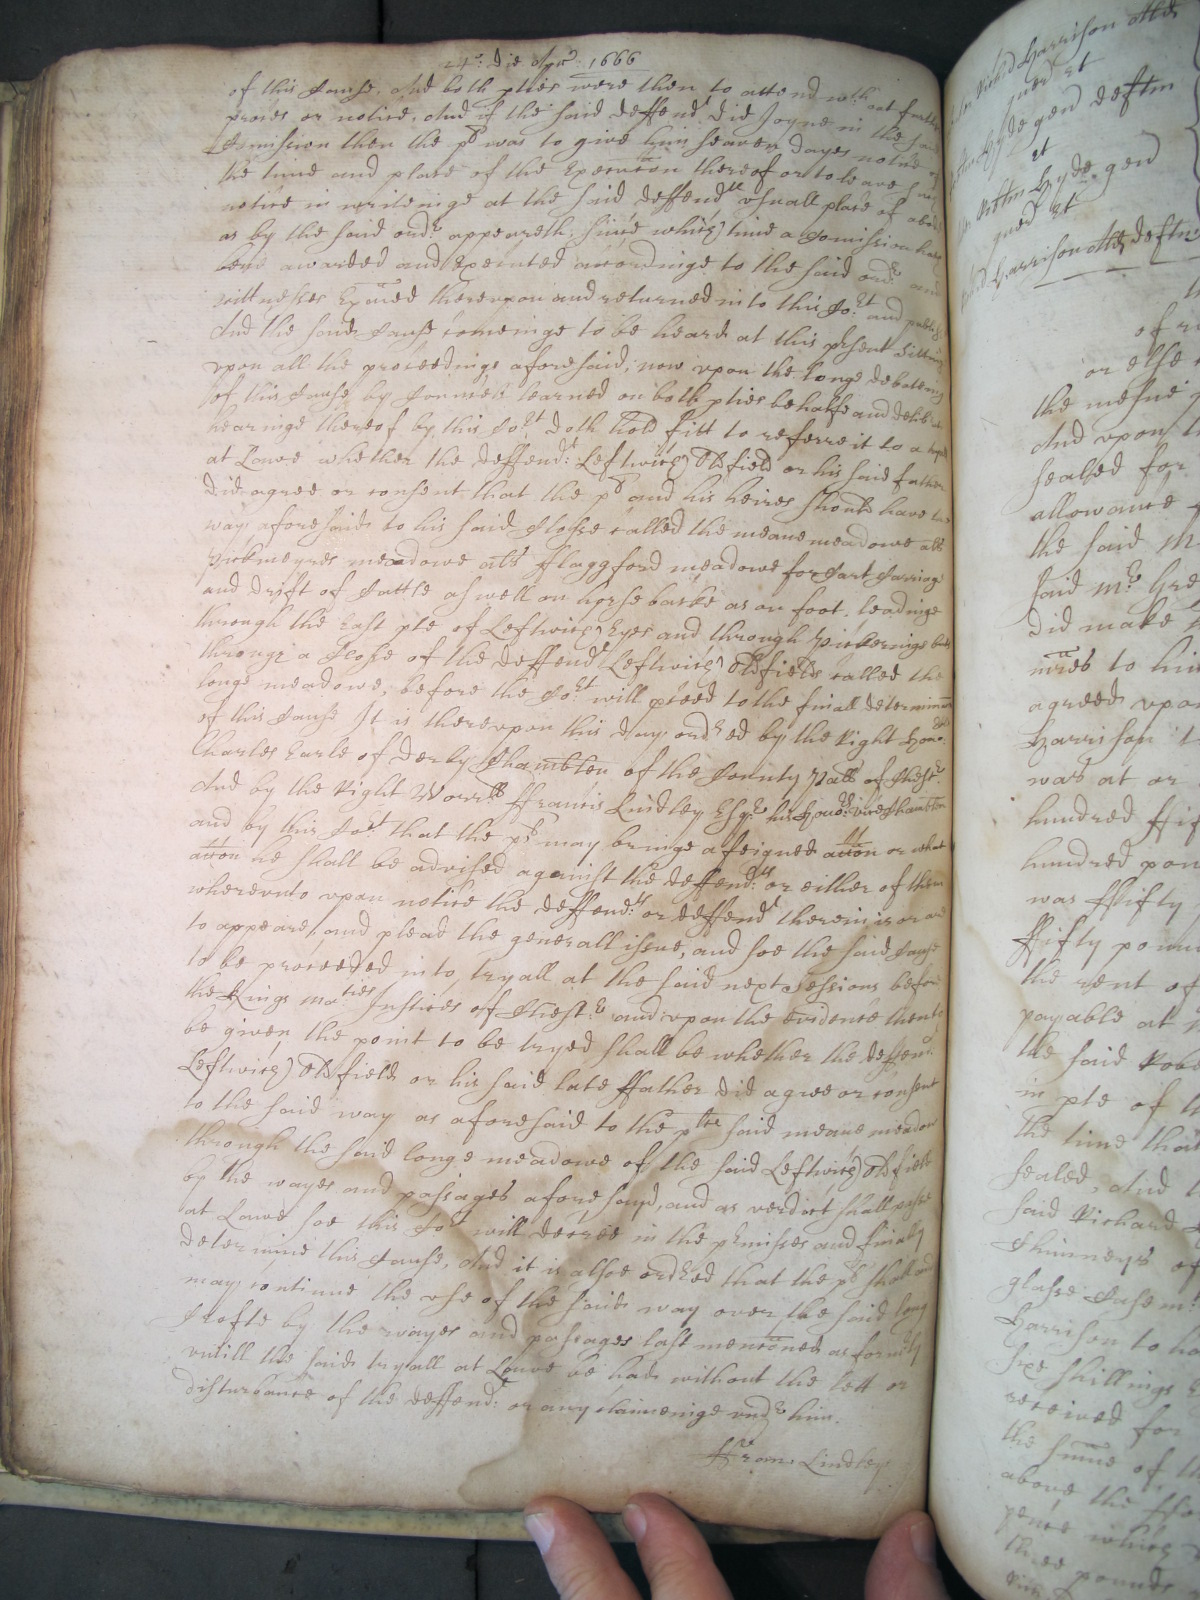 24º: die Apr: 1666
of this Cause, And both pties were then to attend wth out further
proces or notice, And if the said deffendt did Joyne in the said
Comission then the plt was to give him seaven dayes notice of
the time and place of the Execucon thereof or to leave such
notice in writeinge at the said deffendts vsuall place of aboad
as by the said ordr appeareth. since which time a Comission hath
bene awarded and Executed accordinge to the said ordr and
wittnesses Exmed therevpon and returned into this Cort and publi
And the said Cause comeinge to be heard at this psent Sitting
vpon all the proceedings aforesaid, now vpon the longe debateing
of this Cause by Councell learned on both pties behalfe and delib
hearinge thereof by this Cort doth hold fitt to referre it to a tryall
at Lawe whether the deffendt: Leftwich Oldfield or his said father
did agree or consent that the plt and his heires should have the
way aforesaid to his said Close called the meane meadowe als
Pickmeyres meadowe als fflaggford meadowe for Cart Carriage
and drift of Cattle as well on horse backe as on foot, leadinge
through the East pte of Leftwich Eyes and through Pickerings
throug a Close of the deffendt Leftwich Oldfield called the
longe meadowe, before the Cort will pceed to the finall determinacon
of this Cause It is therevpon this day ordred by the Right honoble
Charles Earle of Derby Chamblen of the County Pallt of Chestr
And by the Right Worrll ffrancis Lindley Esqr his honors vice Chamblen
and by this Cort that the plt may bringe a feigned accon or what
accon he shall be advised against the deffendts or either of them
wherevnto vpon notice the deffendts or deffendt therein is or are
to appeare and plead the generall issue, and soe the said Cause
to be proceeded into tryall at the said next Sessions before
the Kings maties Justices of Chestr and vpon the evidence then to
be given the point to be tryed shall be whether the deffendt
Leftwich Oldfield or his said late ffather did agree or consent
to the said way as aforesaid to the plts said meane meadow
through the said longe meadowe of the said Leftwich Oldfield
by the wayes and passages aforesayd, and as verdict shall passe
at Lawe soe this Cort will decree in the pmisses and finally
determine this Cause, And it is alsoe ordred that the plt shall and
may continue the vse of the said way over the said long
Crofte by the wayes and passages last menconed as formrly
vntill the said tryall at Lawe be had without the lett or
disturbance of the deffendt: or any claimeinge vndr him.
ffran: Lindley
Richd Harrison
quer et
Hyde gen deftm
et
Hyde gen
quer et
Harrison deftm
of
or else
the mesne
And vpon
sealed for
allowance
the said
said mr
did make
to him
agreed vpon
Harrison
was at or
hundred fif
hundred pou
was ffifty
ffifty pound
the rent of
payable at
the said Robe
in pte of
the time tha
sealed, And
said Richard
Chimneys of
glasse Casemt
Harrison to ha
sixe shillings
received for
the sume of
above the
pence which
three pounds